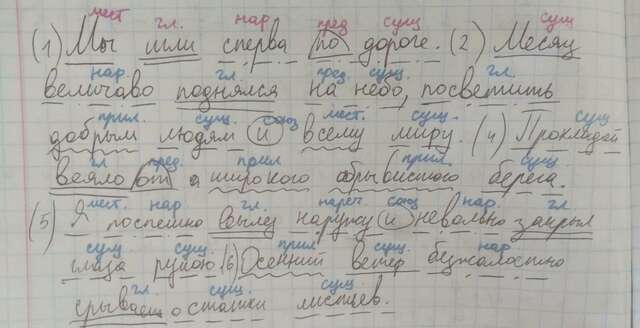 мест гл. нар пред сущ сущ
(1) Мы шли сперва по дороге. (2) Месяц
нар. гл. пред. сущ. гл.
величаво поднялся на небо, посветить
прил. сущ. союз мест. сущ.
добрым людям и всему миру. (4) Прохладой
гл пред. прил прил. сущ. сущ
веяло от широкого обрывистого берега.
мест. нар гл. нареч. союз нар. гл.
(5) Я поспешно вылез наружу и невольно закрыл
сущ сущ. прил сущ. нар
глаза рукою. (6) Осенний ветер безжалостно
гл. сущ сущ.
срывает остатки листьев.